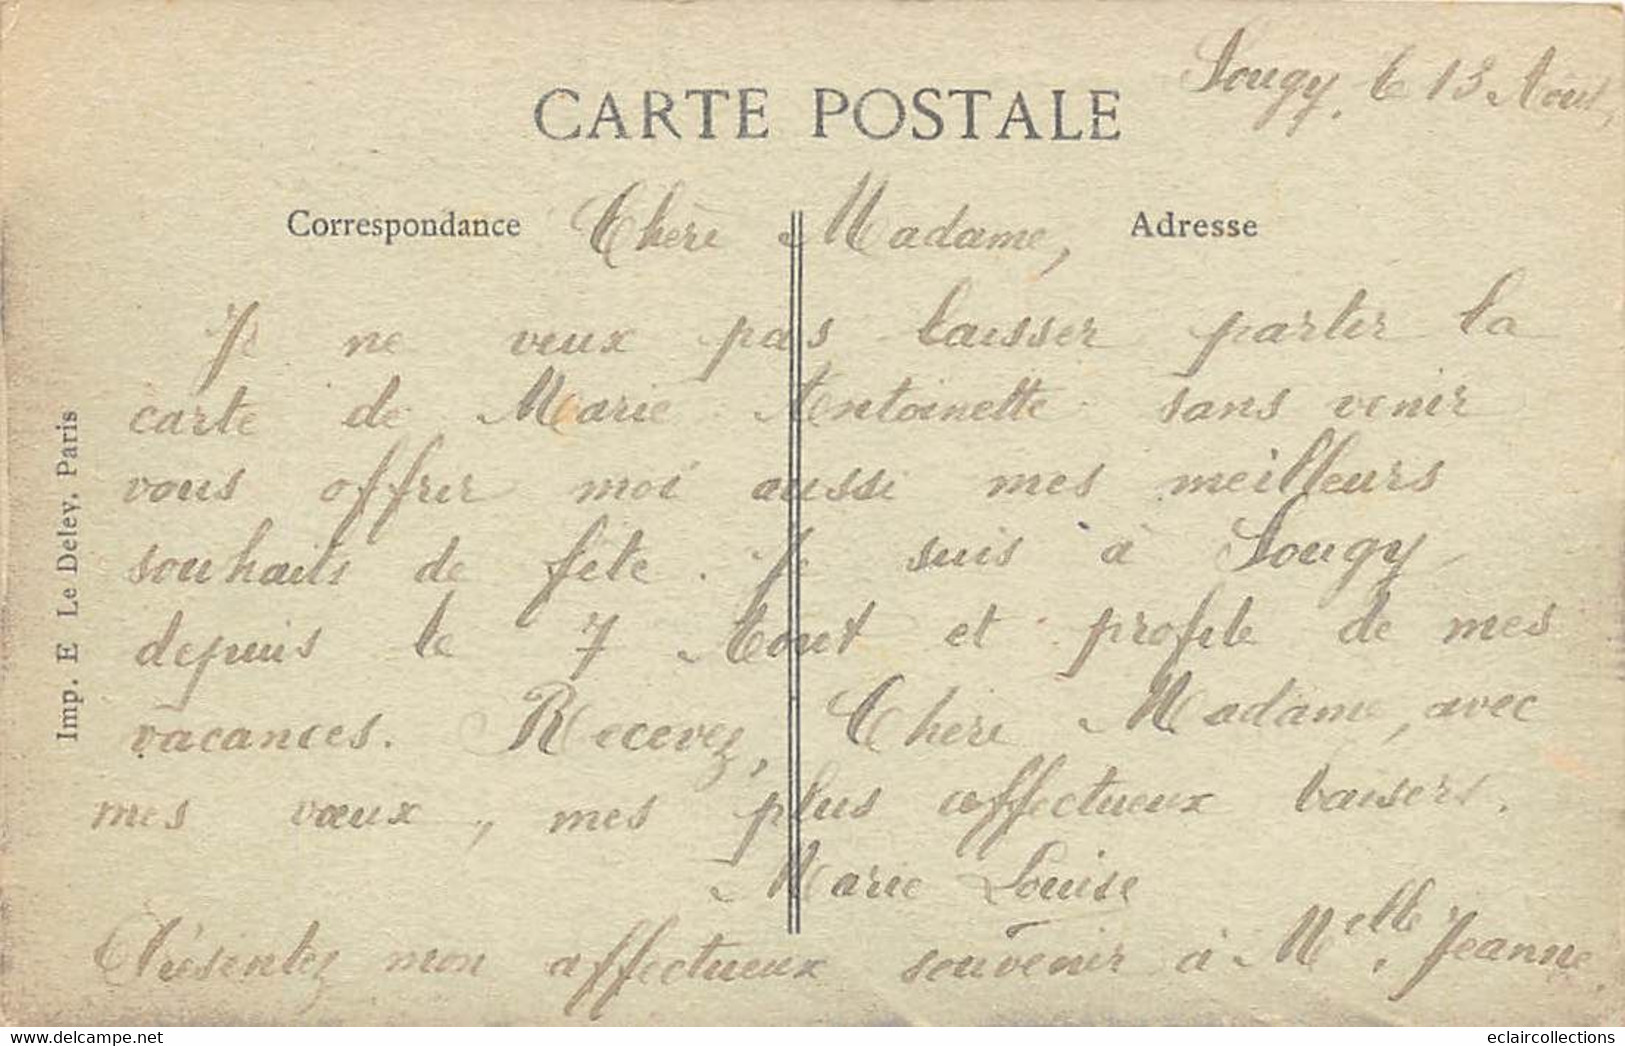 Sougy, le 13 Août,
CARTE POSTALE
Correspondance
Adresse
Chère Madame,
Je ne veux pas laisser partir la
carte de Marie Antoinette sans venir
vous offrir moi aussi mes meilleurs
souhaits de fête. Je suis à Sougy
depuis le 7 Août et profite de mes
vacances. Recevez, Chère Madame, avec
mes vœux, mes plus affectueux baisers.
Marie Louise
Présentez mon affectueux souvenir à Melle Jeanne.
Imp. E Le Deley, Paris
delcampe.net
eclaircollections